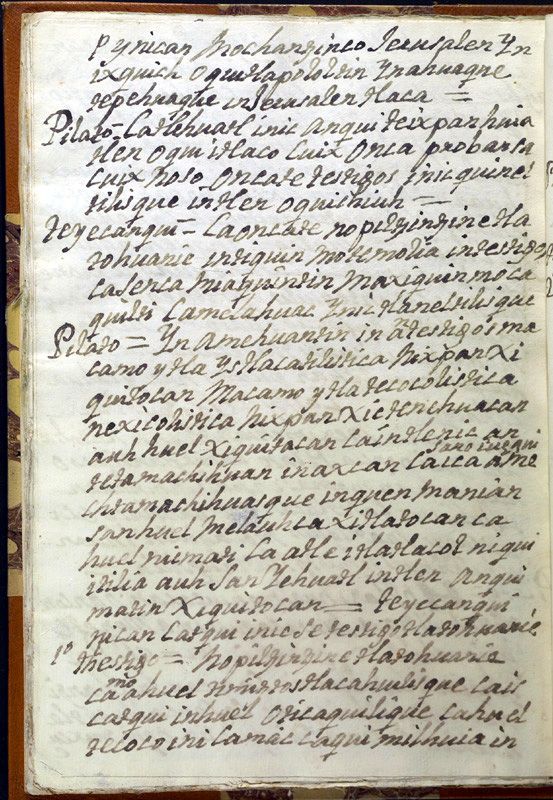 Pynican Mochantinco Jerusalen Yn
ixquich oquitlapololtin Ynahuaque
tepehuaque in Jerusalen tlaca =
Pilato = Catlehuatl inic anquiteixpanhuia
tlen oquitlaco Cuix Onca probansa
Cuix noso Oncate testigos inic quinel
tilisque intlen oquichiuh =
teyecanqui = Ca oncate nopiltzintzine tla
tohuanie intiquin motemolia intestigos
ca senca miaquintin maxiquinmoca
quilti Camelahuac Ynic tlaneltilisque
Pilato = Yn amehuantin in antestigos ma
camo ytla Ystlacatilistica Nixpan Xi
quitocan Macamo ytla tecocolistica
nexicolistica Nixpan Xictenehuacan
auh huel Xiquitacan Caintlenic an
tetamachihuan inaxcan Ca ica ame
chtamachihuasque inquen manian
san huel Melauhca Xitlatocan ca
huel nicmati Ca atle itlatlacol niqui
itilia auh San Yehuatl intlen anqui
matin Xiquitocan = teyecanqui
nican Catqui inic Se testigo tlatohuanie
1º thestigo = Nopiltzintzine tlatohuanie
camo ahuel timitzistlacahuilisque cais
catqui inhuel oticaquilique cahuel
tecoco ini Camac caquimilhuia in